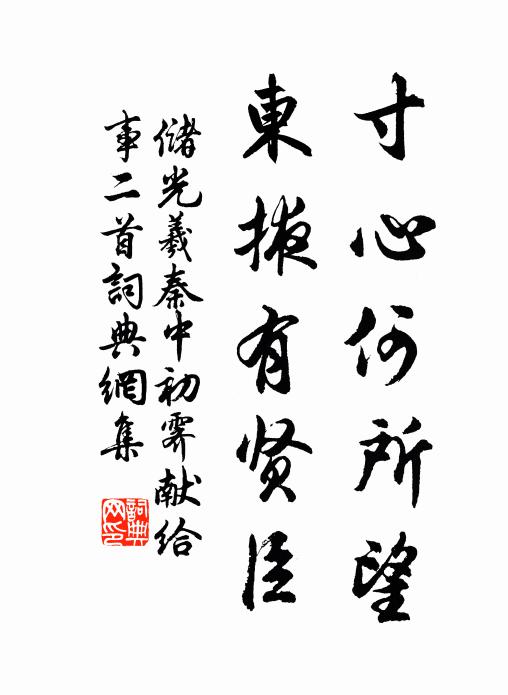 寸心何所望
東掖有贤臣
儲光羲秦中初霽献給
事二首詞典網集
詞典
网印